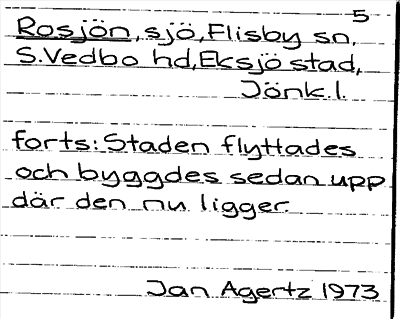 5
Rosjön, sjö, Flisby sn,
S.Vedbo hd, Eksjö stad,
Jönk.l.
forts: Staden flyttades
och byggdes sedan upp
där den nu ligger.
Jan Agertz 1973